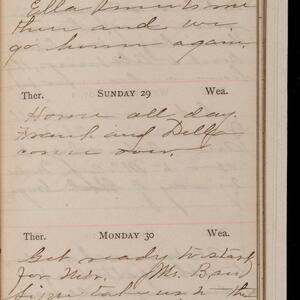 Ella
then and we
go home again.
Ther. SUNDAY 29 Wea.
Home all day.
Frank and Della
come over.
Ther. MONDAY 30 Wea.
Get ready to start
for Neb. Mr.
take us to the